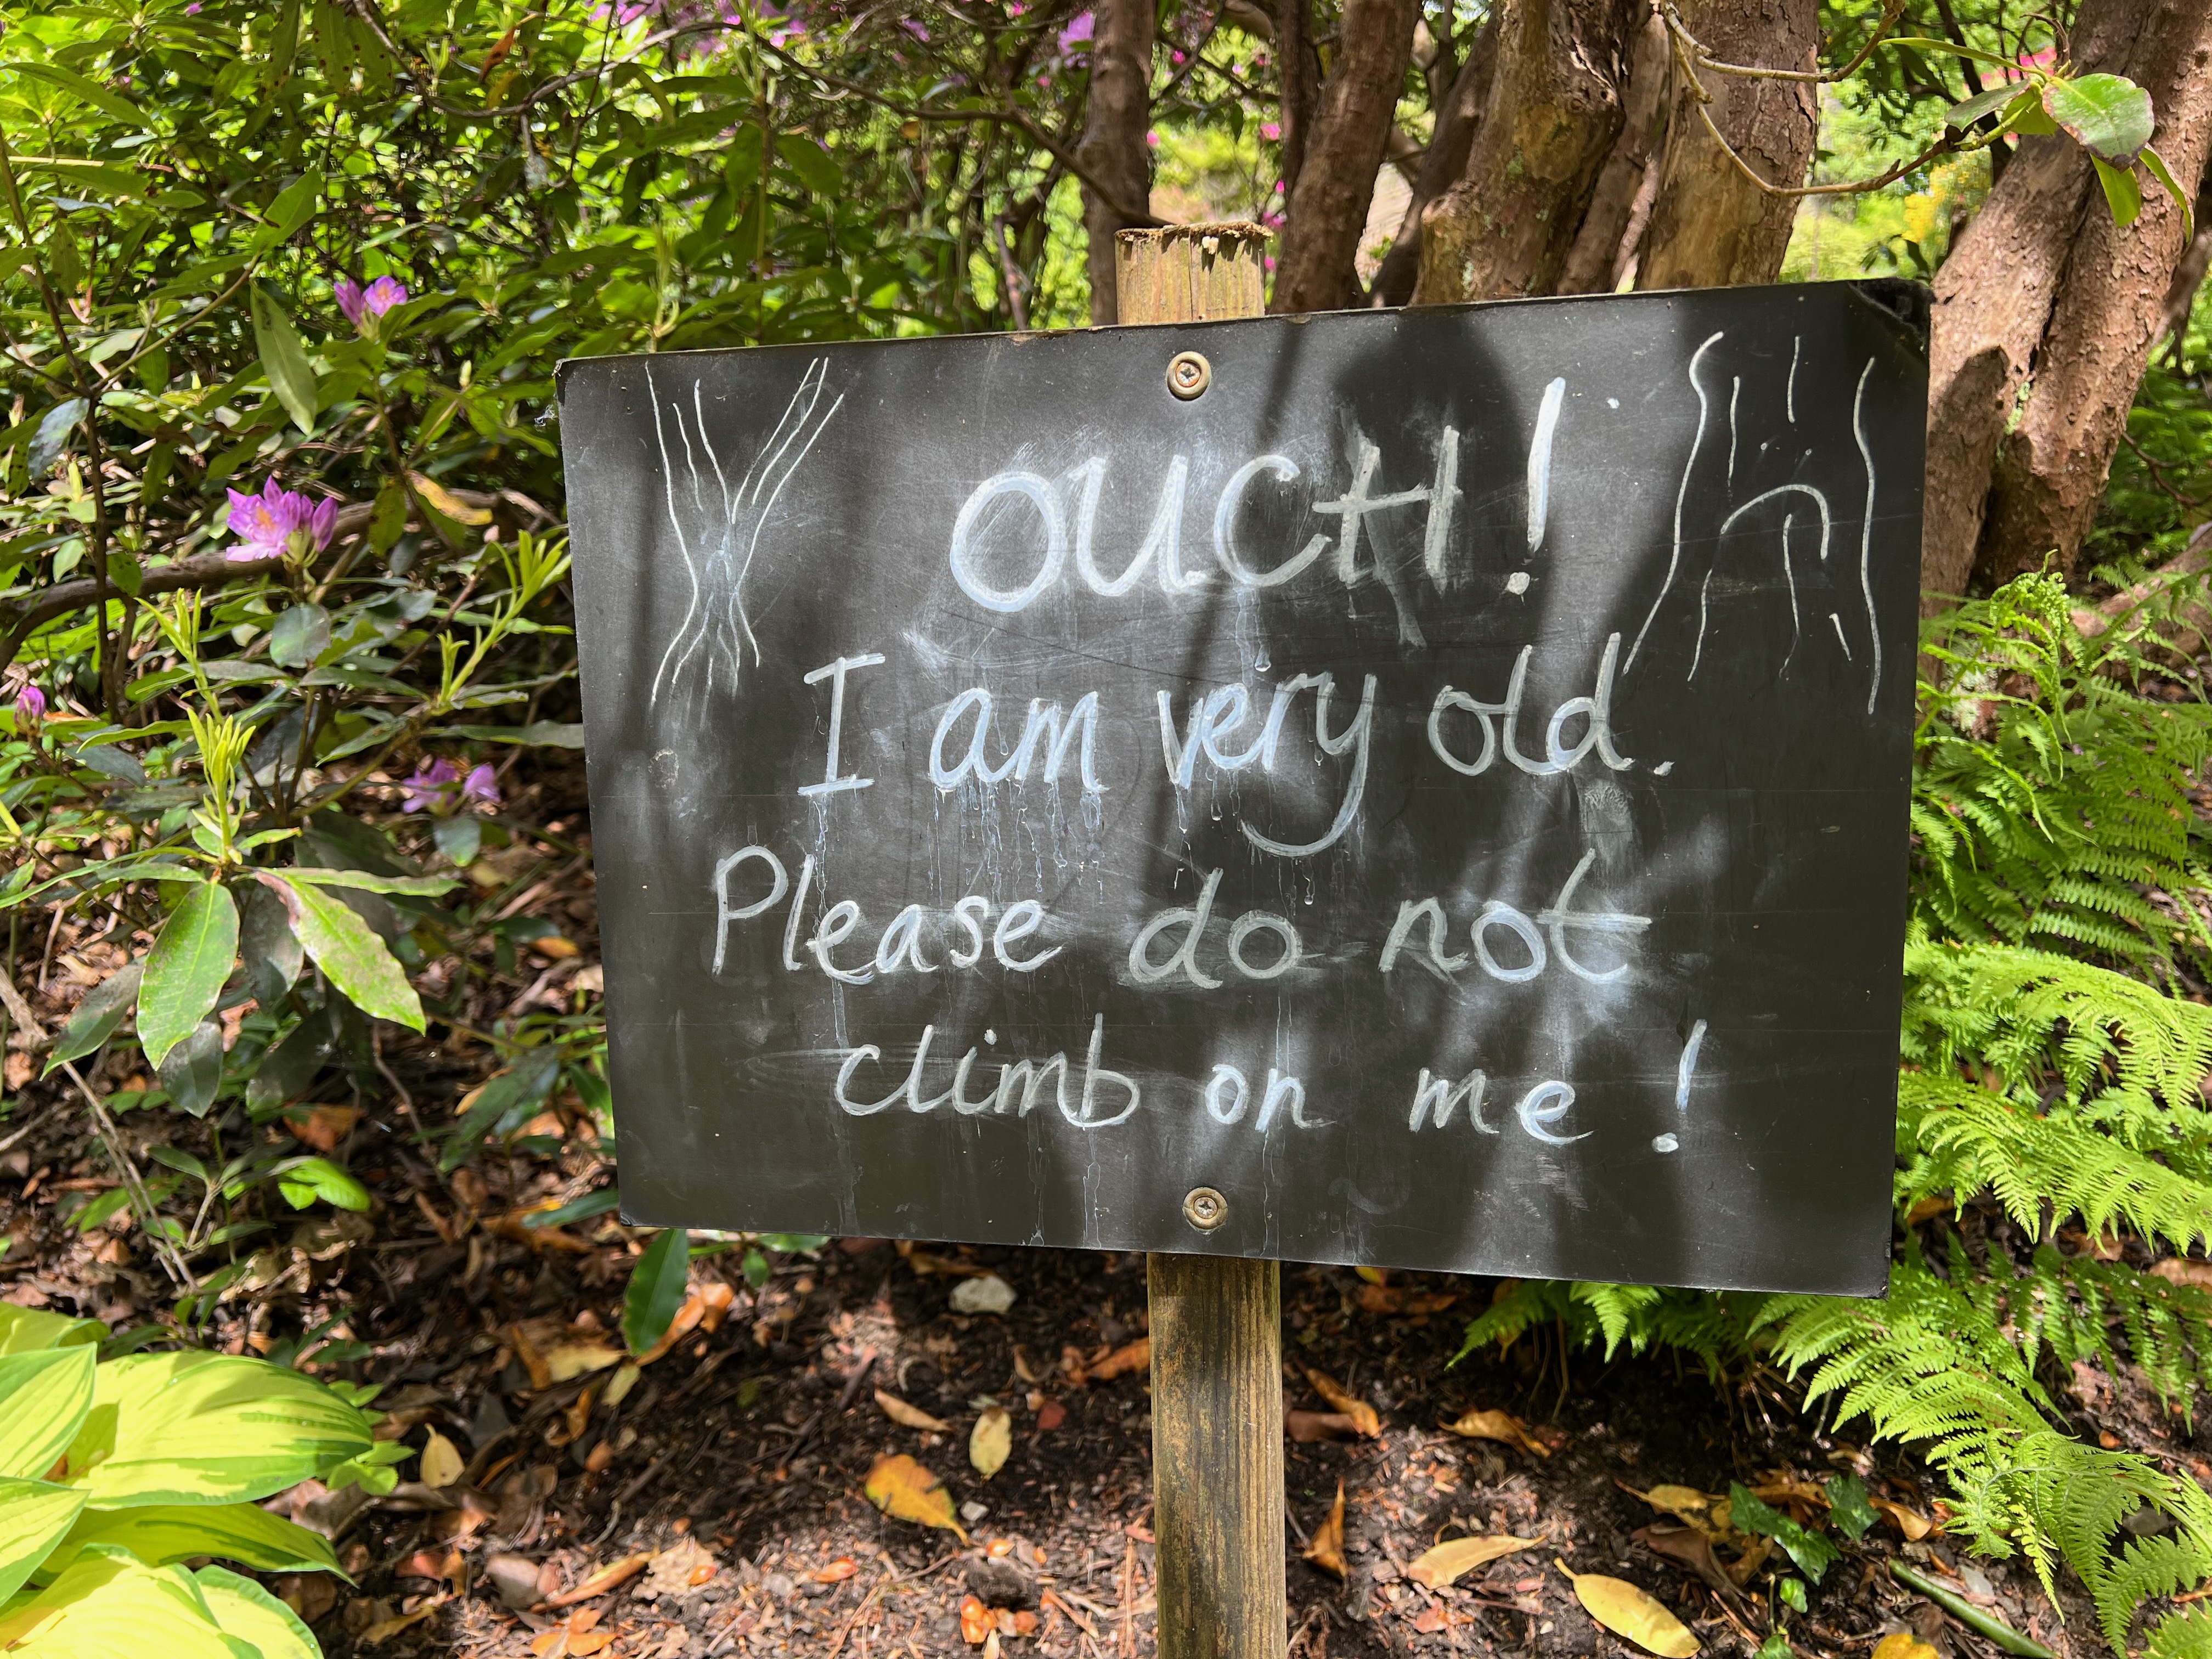 OUCH!
I am very old.
Please do not
climb on me!